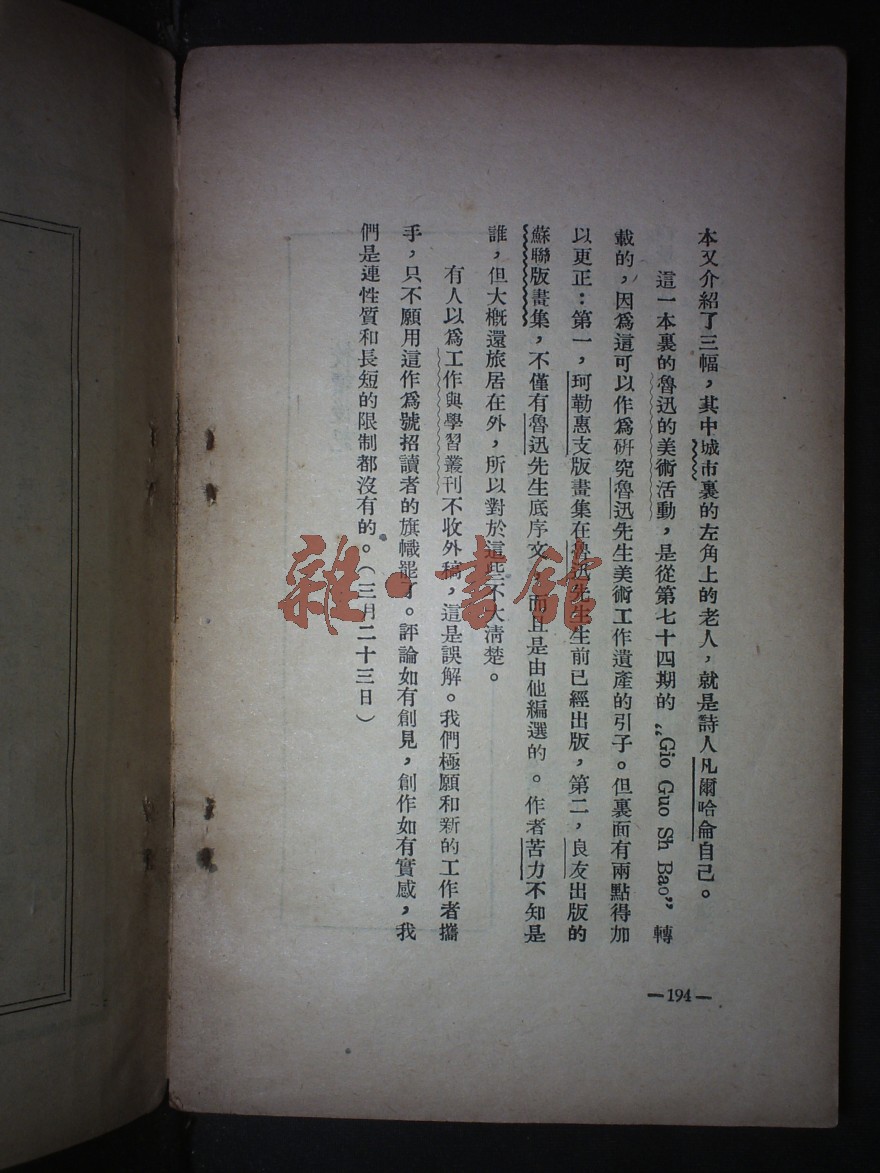 本又介紹了三幅，其中城市裏的左角上的老人，就是詩人凡爾哈侖自己。
這一本裏的魯迅的美術活動，是從第七十四期的„Gio Guo Sh Bao” 轉
載的，因爲這可以作爲研究魯迅先生美術工作遺產的引子。但裏面有兩點得加
以更正：第一，珂勒惠支版畫集在魯迅先生生前已經出版，第二，良友出版的
蘇聯版畫集，不僅有魯迅先生底序文，而且是由他編選的。作者苦力不知是
誰，但大概還旅居在外，所以對於這些不大清楚。
有人以爲工作與學習叢刊不收外稿，這是誤解。我們極願和新的工作者攜
手，只不願用這作爲號招讀者的旗幟罷了。評論如有創見，創作如有實感，我
們是連性質和長短的限制都沒有的。（三月二十三日）
—194—
雜·書館